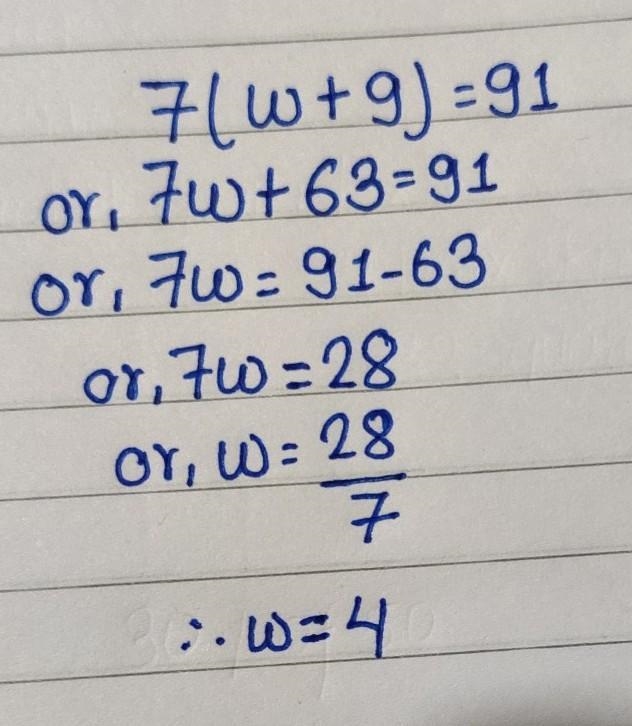 7(w+9)=91
or, 7w+63=91
or, 7w=91-63
or, 7w=28
or, w=28/7
∴ w=4